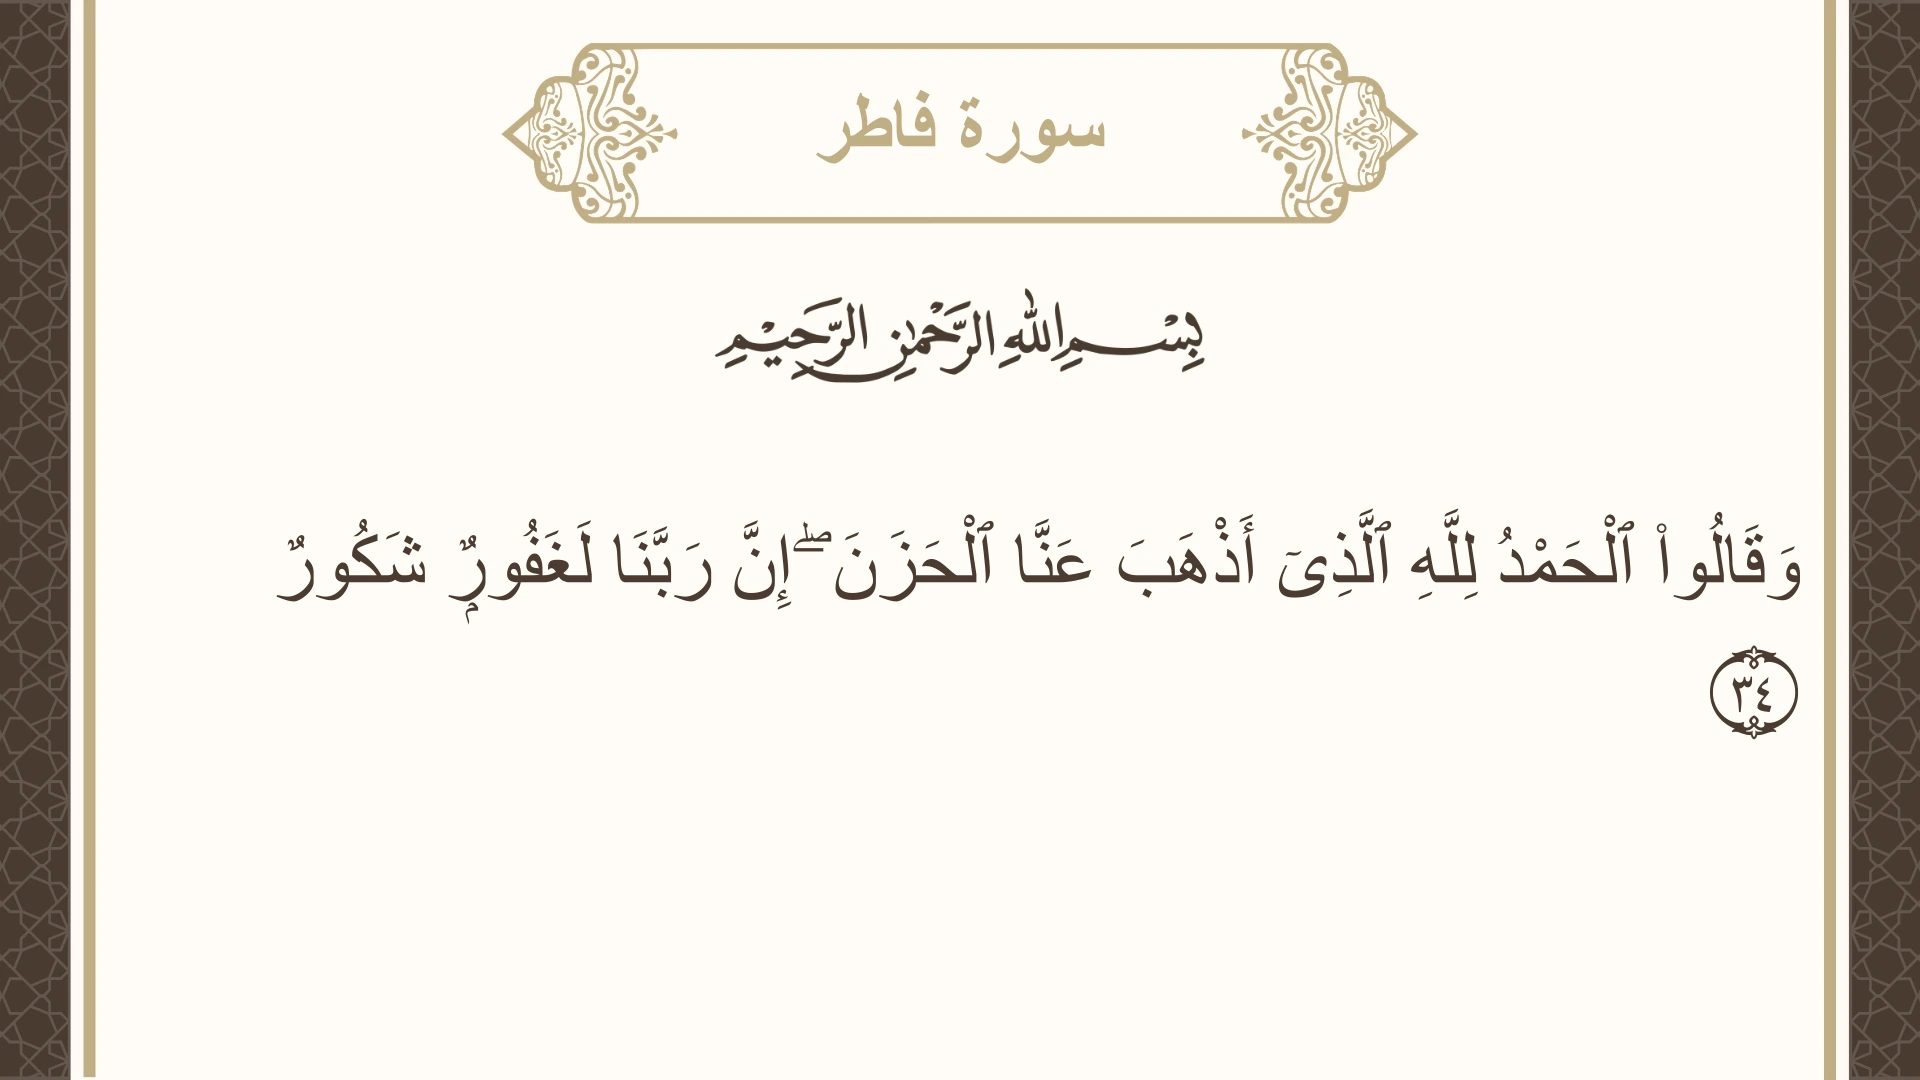 سورة فاطر
بِسْمِ اللهِ الرَّحْمٰنِ الرَّحِيْمِ
وَقَالُوا۟ ٱلْحَمْدُ لِلَّهِ ٱلَّذِىٓ أَذْهَبَ عَنَّا ٱلْحَزَنَ ۖ إِنَّ رَبَّنَا لَغَفُورٌۭ شَكُورٌ
٣٤